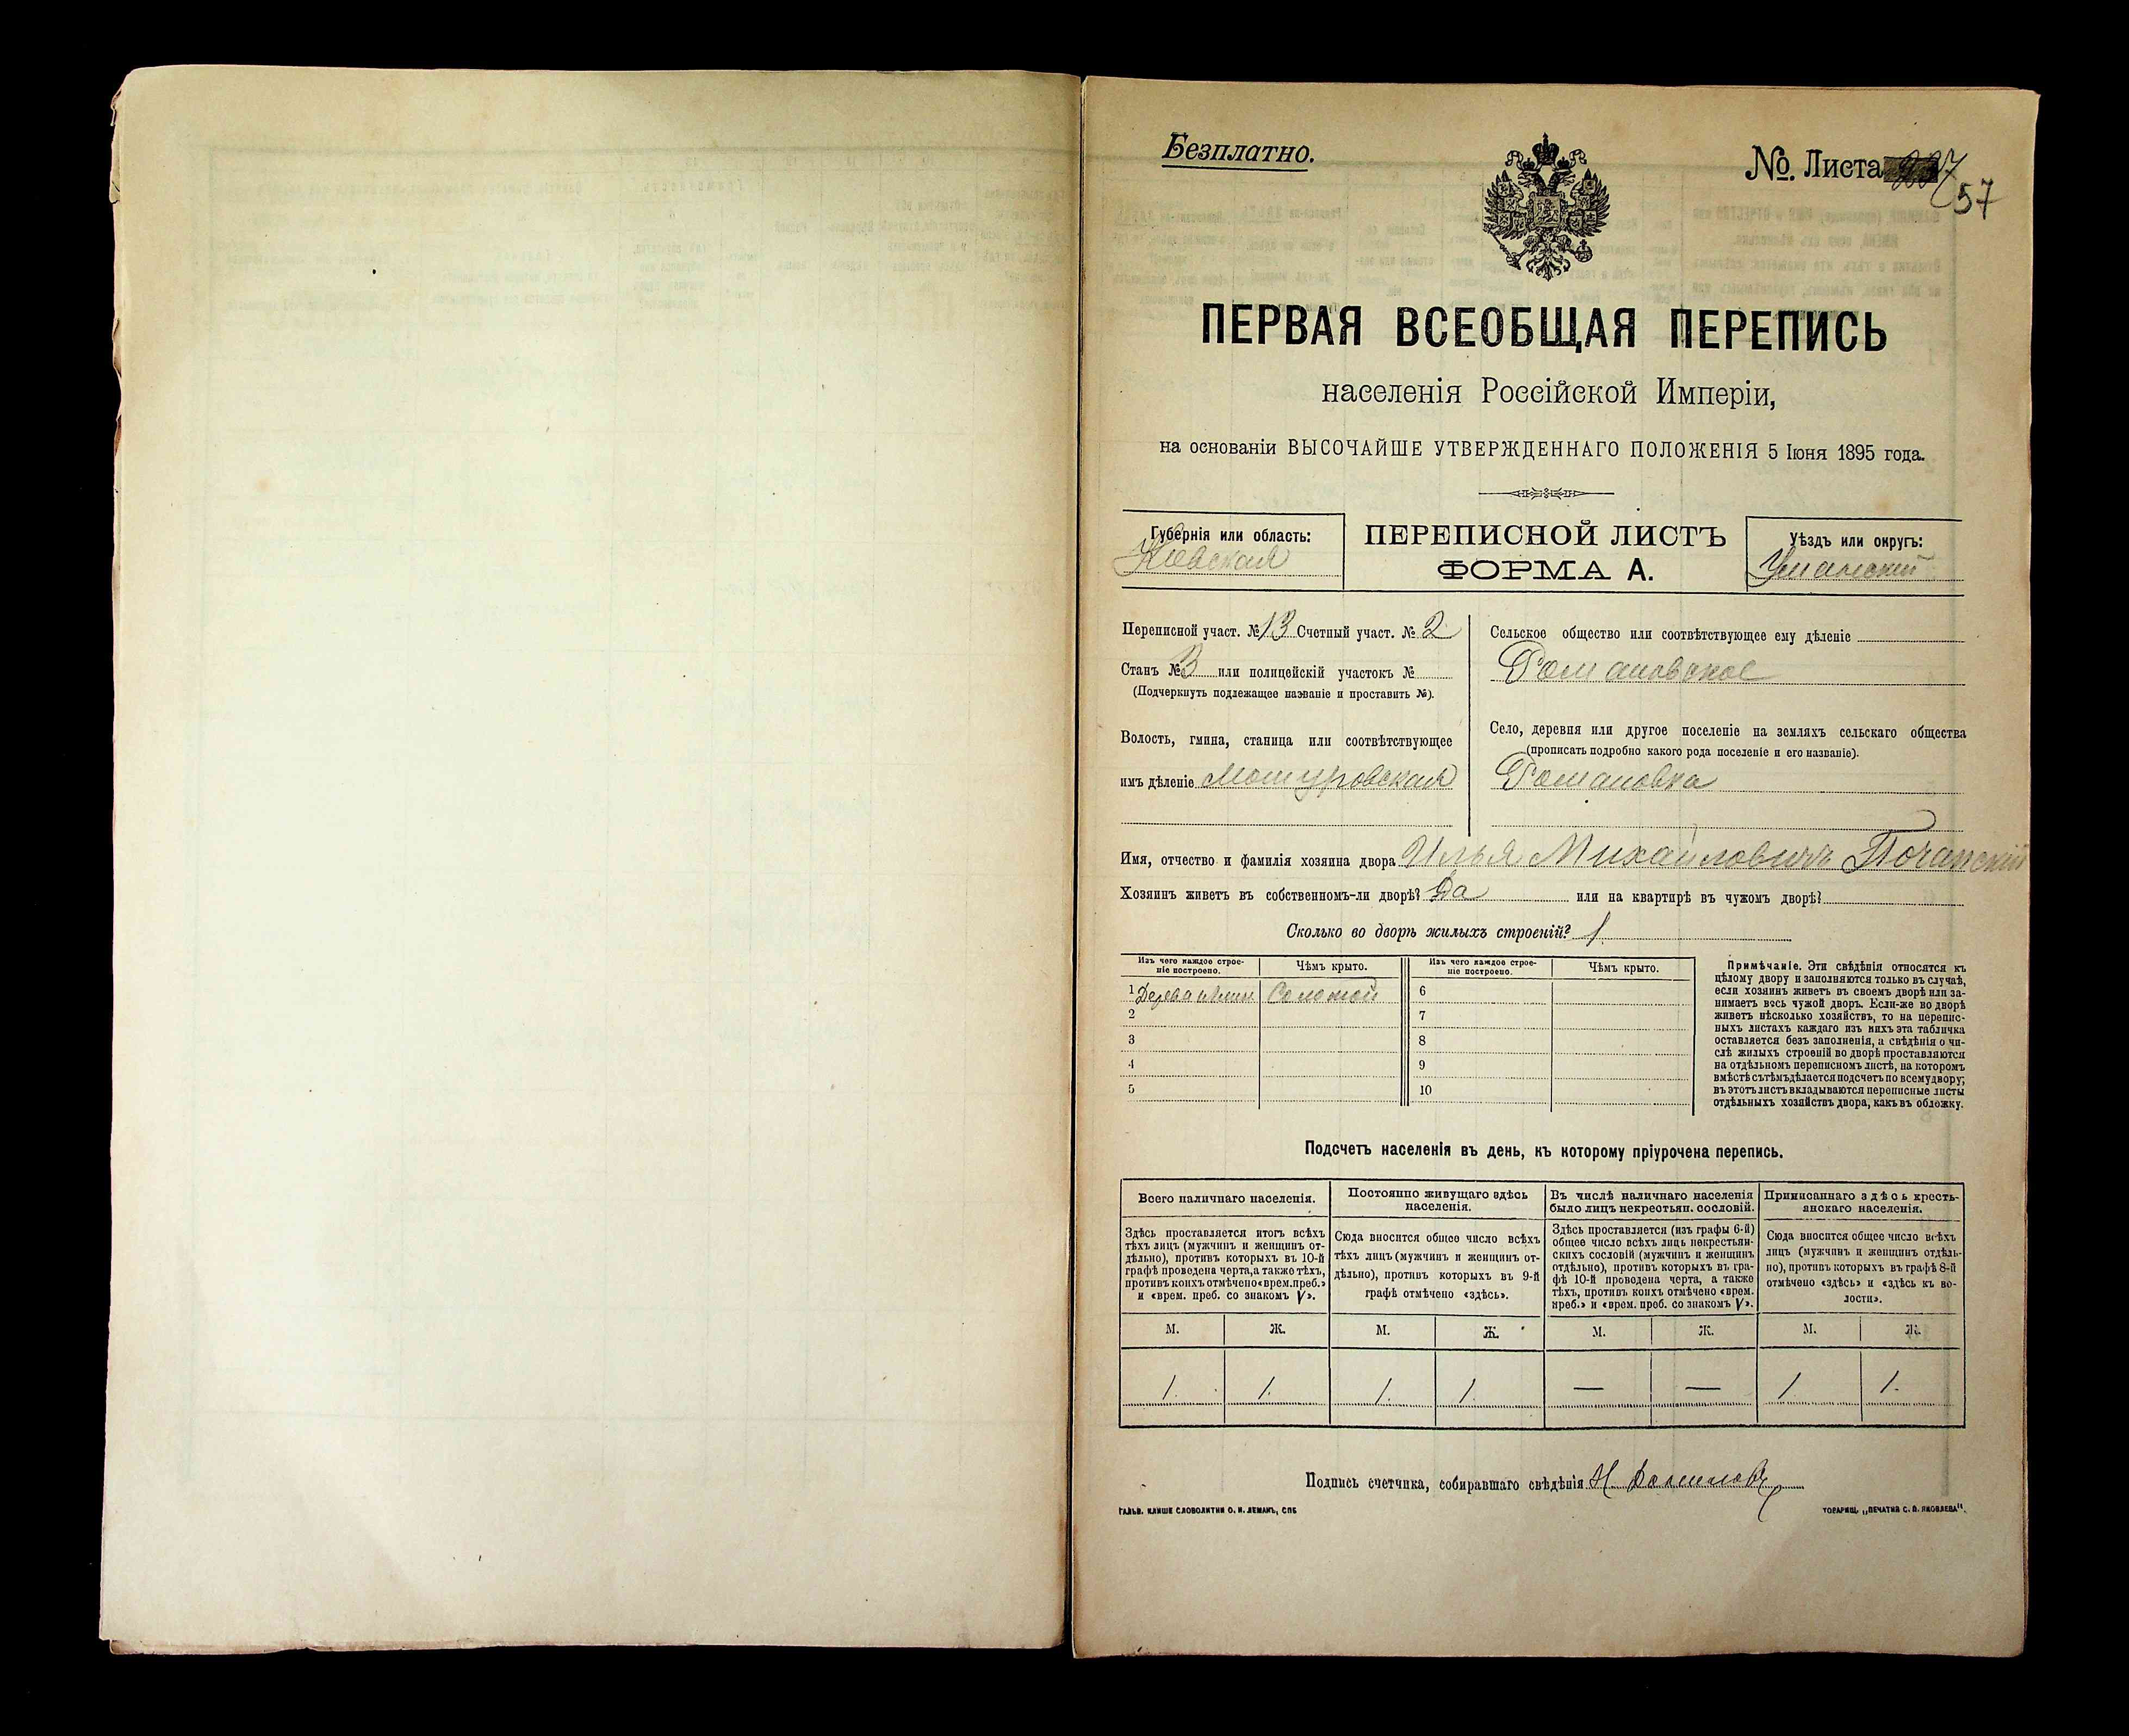 Безплатно.
№. Листа 237
57
ПЕРВАЯ ВСЕОБЩАЯ ПЕРЕПИСЬ
населенія Россійской Имперіи,
на основаніи ВЫСОЧАЙШЕ УТВЕРЖДЕННАГО ПОЛОЖЕНІЯ 5 Іюня 1895 года.
Губернія или область:
Кіевская
ПЕРЕПИСНОЙ ЛИСТЪ
ФОРМА А.
Уѣздъ или округъ:
Уманскій
Переписной участ. № 13 Счетный участ. № 2
Станъ № 3 или полицейскій участокъ №
(Подчеркнуть подлежащее названіе и проставить №).
Волость, гмина, станица или соотвѣтствующее
имъ дѣленіе Мошуровская
Сельское общество или соотвѣтствующее ему дѣленіе
Романовское
Село, деревня или другое поселеніе на земляхъ сельскаго общества
(прописать подробно какого рода поселеніе и его названіе).
Романовка
Имя, отчество и фамилія хозяина двора Илья Михайловичъ
Хозяинъ живетъ въ собственномъ-ли дворѣ? Да или на квартирѣ въ чужомъ дворѣ?
Сколько во дворѣ жилыхъ строеній? 1
Изъ чего каждое строе-
ніе построено.
Чѣмъ крыто.
Изъ чего каждое строе-
ніе построено.
Чѣмъ крыто.
1 Дерева и глин Соломой 6
2 7
3 8
4 9
5 10
Примѣчаніе. Эти свѣдѣнія относятся къ
цѣлому двору и заполняются только въ случаѣ,
если хозяинъ живетъ въ своемъ дворѣ или за-
нимаетъ весь чужой дворъ. Если-же во дворѣ
живетъ нѣсколько хозяйствъ, то на перепис-
ныхъ листахъ каждаго изъ нихъ эта табличка
оставляется безъ заполненія, а свѣдѣнія о чи-
слѣ жилыхъ строеній во дворѣ проставляются
на отдѣльномъ переписномъ листѣ, на которомъ
вмѣстѣ съ тѣмъ дѣлается подсчетъ по всему двору;
въ этотъ листъ вкладываются переписные листы
отдѣльныхъ хозяйствъ двора, какъ въ обложку.
Подсчетъ населенія въ день, къ которому пріурочена перепись.
Всего наличнаго населенія.
Здѣсь проставляется итогъ всѣхъ
тѣхъ лицъ (мужчинъ и женщинъ от-
дѣльно), противъ которыхъ въ 10-й
графѣ проведена черта, а также тѣхъ,
противъ коихъ отмѣчено «врем. преб.»
и «врем. преб. со знакомъ V».
Постоянно живущаго здѣсь
населенія.
Сюда вносится общее число всѣхъ
тѣхъ лицъ (мужчинъ и женщинъ от-
дѣльно), противъ которыхъ въ 9-й
графѣ отмѣчено «здѣсь».
Въ числѣ наличнаго населенія
было лицъ некрестьян. сословій.
Здѣсь проставляется (изъ графы 6-й)
общее число всѣхъ лицъ некрестьян-
скихъ сословій (мужчинъ и женщинъ
отдѣльно), противъ которыхъ въ гра-
фѣ 10-й проведена черта, а также
тѣхъ, противъ коихъ отмѣчено «врем.
преб.» и «врем. преб. со знакомъ V».
Приписаннаго здѣсь кресть-
янскаго населенія.
Сюда вносится общее число всѣхъ
лицъ (мужчинъ и женщинъ отдѣль-
но), противъ которыхъ въ графѣ 8-й
отмѣчено «здѣсь» и «здѣсь къ во-
лости».
М. Ж. М. Ж. М. Ж. М. Ж.
1. 1. 1. 1. — — 1. 1.
Подпись счетчика, собиравшаго свѣдѣнія Н
ГАЛЬВ. КЛИШЕ СЛОВОЛИТНИ О. И. ЛЕМАНЪ, СПБ
ТОВАРИЩ. „ПЕЧАТНЯ С. П. ЯКОВЛЕВА".